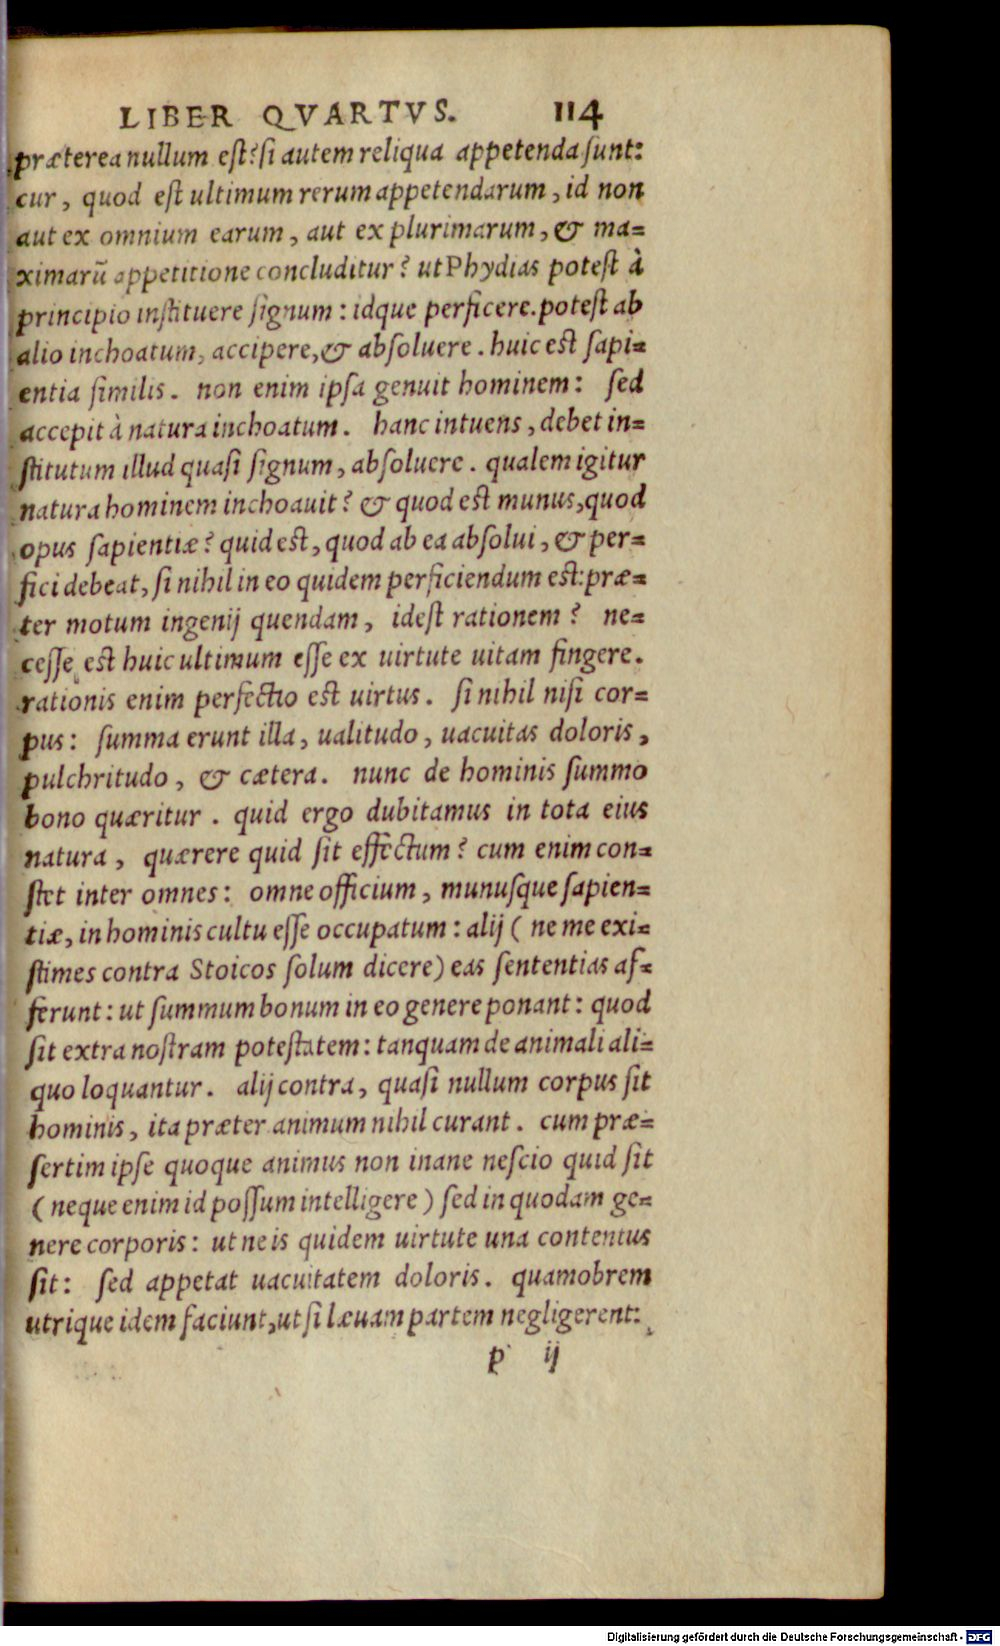 LIBER QVARTVS. 114
præterea nullum est? si autem reliqua appetenda sunt:
cur, quod est ultimum rerum appetendarum, id non
aut ex omnium earum, aut ex plurimarum, & ma=
ximarū appetitione concluditur? ut Phydias potest à
principio instituere signum: idque perficere. potest ab
alio inchoatum, accipere, & absoluere. huic est sapi=
entia similis. non enim ipsa genuit hominem: sed
accepit à natura inchoatum. hanc intuens, debet in=
stitutum illud quasi signum, absoluere. qualem igitur
natura hominem inchoauit? & quod est munus, quod
opus sapientiæ? quid est, quod ab ea absolui, & per=
fici debeat, si nihil in eo quidem perficiendum est: præ=
ter motum ingenij quendam, idest rationem? ne=
cesse est huic ultimum esse ex uirtute uitam fingere.
rationis enim perfectio est uirtus. si nihil nisi cor=
pus: summa erunt illa, ualitudo, uacuitas doloris,
pulchritudo, & cætera. nunc de hominis summo
bono quæritur. quid ergo dubitamus in tota eius
natura, quærere quid sit effectum? cum enim con=
stet inter omnes: omne officium, munusque sapien=
tiæ, in hominis cultu esse occupatum: alij (ne me exi=
stimes contra Stoicos solum dicere) eas sententias af=
ferunt: ut summum bonum in eo genere ponant: quod
sit extra nostram potestatem: tanquam de animali ali=
quo loquantur. alij contra, quasi nullum corpus sit
hominis, ita præter animum nihil curant. cum præ=
sertim ipse quoque animus non inane nescio quid sit
(neque enim id possum intelligere) sed in quodam ge=
nere corporis: ut ne is quidem uirtute una contentus
sit: sed appetat uacuitatem doloris. quamobrem
utrique idem faciunt, ut si læuam partem negligerent:
p ij
Digitalisierung gefördert durch die Deutsche Forschungsgemeinschaft - DFG